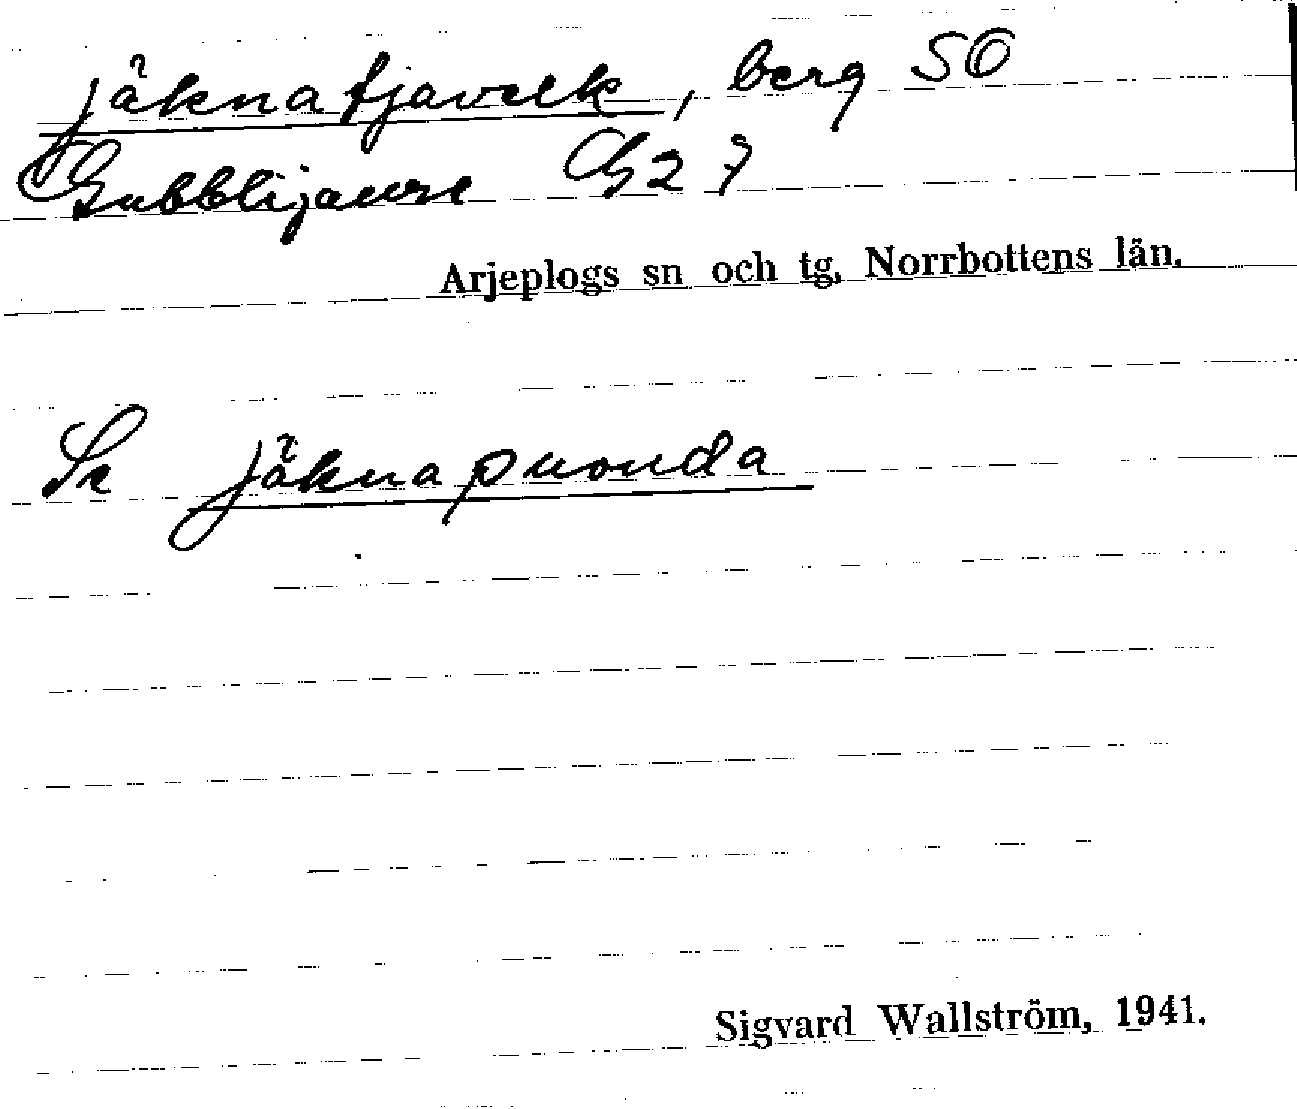 jåknatjavelk, berg SO
Gubblijaure G27
Arjeplogs sn och tg, Norrbottens län.
Se jåknapuonda
Sigvard Wallström, 1941.